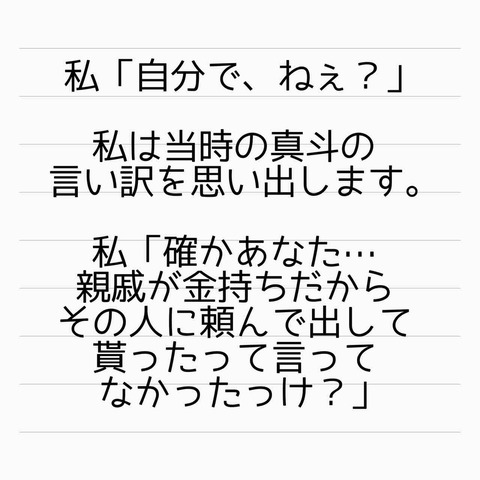 私「自分で、ねぇ？」
私は当時の真斗の
言い訳を思い出します。
私「確かあなた…
親戚が金持ちだから
その人に頼んで出して
貰ったって言って
なかったっけ？」